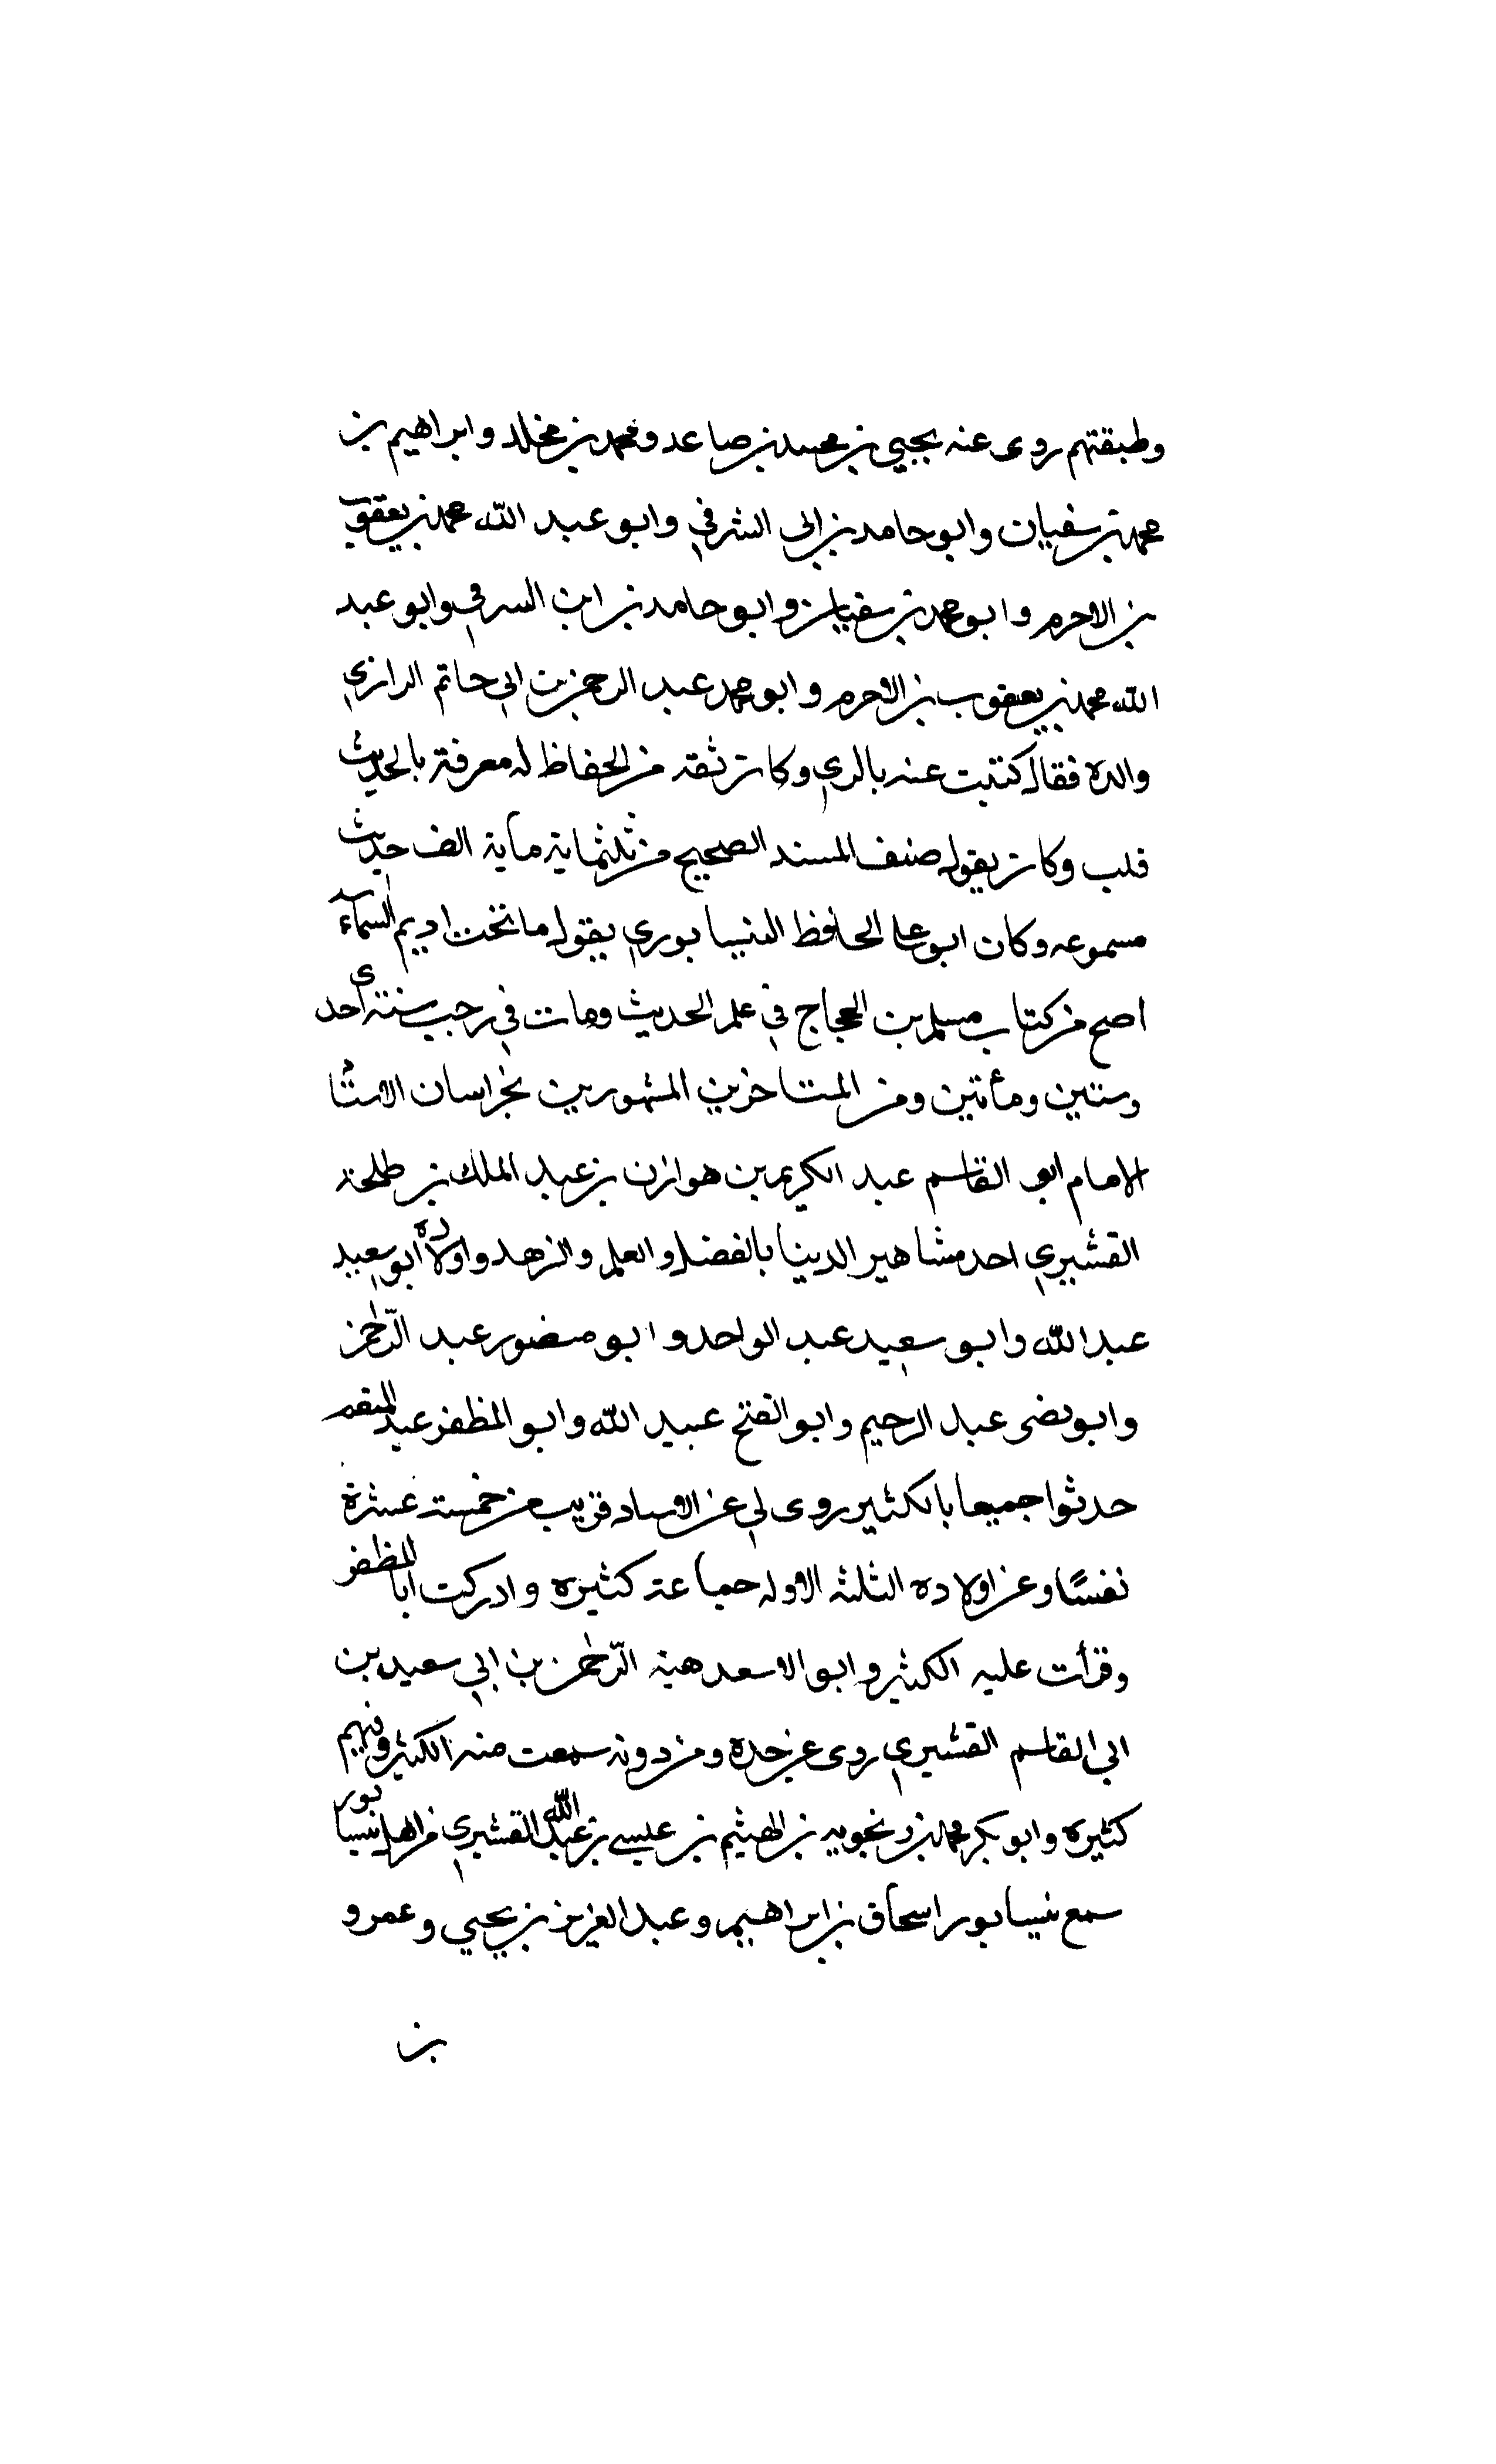 وطبقتهم روى عنه يحيي بن محمد بن صاعد ومحمد بن مخلد وابراهيم بن
محمد بن سفيان وابو حامد بن ابى الشرفي وابو عبد الله محمد بن يعقوب
بن الاخرم وابو محمد بن سفيان وابو حامد بن ابن السرفي وابو عبد
الله محمد بن يعقوب بن الاخرم وابو محمد عبد الرحمن بن ابي حاتم الرازي
والده فقال كتبت عنه بالري وكان ثقة من الحفاظ له معرفة بالحديث
قلب وكان يقول صنف المسند الصحيح من ثلثماية ماية الف حديث
مسموعه وكان ابو علي الحافظ النيسابوري يقول ما تحت اديم السماء
اصح من كتاب مسلم بن الحجاج في علم الحديث ومات في رجب سنة احدى
وستين ومأتين ومن المتاخرين المشهورين بخراسان الاستا
الامام ابو القاسم عبد الكريم بن هوازن بن عبد الملك بن طلحة
القشيري احد مشاهير الدينا بالفضل والعلم والزهد واولاده ابو سعيد
عبد الله وابو سعيد عبد الواحد وابو منصور عبد الرحمن
وابو نصر عبد الرحيم وابو الفتح عبيد الله وابو المظفر عبد المنعم
حدثوا جميعا بالكثير روى لي عن الاستاد قريب من خمسة عشرة
نفسًا وعن اولاده الثلثه الاوله جماعة كثيره وادركت ابا المظفر
وقرأت عليه الكثير وابو الاسعد هبة الرحمن بن ابي سعيد بن
ابي القاسم القشيري روى عن جده ومن دونه سمعت منه الكثير وفيهم
كثيره وابو بكر محمد بن زنجويه بن الهيثم بن عيسي بن عبد الله القشيري من اهل نيسابور
سمع نيسابور اسحاق بن ابراهيم وعبد العزيز بن يحيي وعمرو
بن